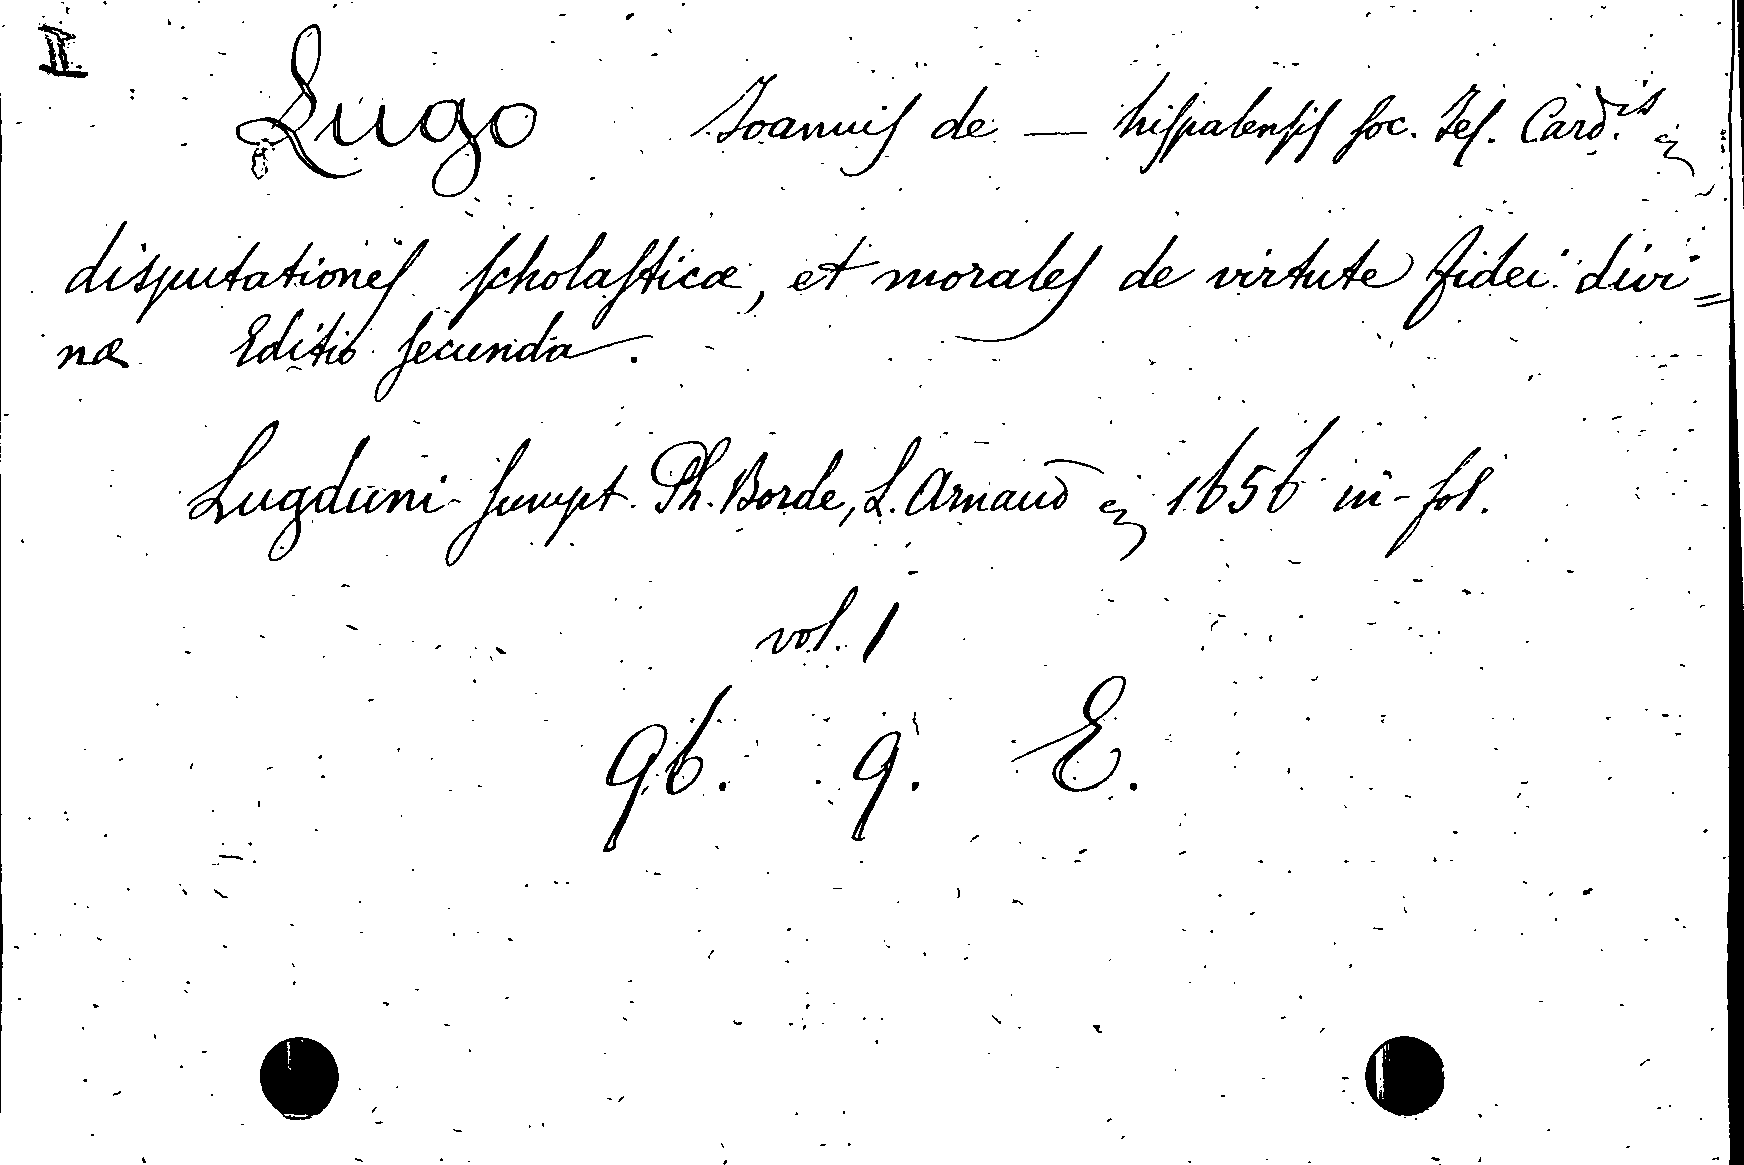 II
Lugo Joannis de — hispalensis soc. Jes. Card.is &
disputationes scholasticæ, et morales de virtute fidei divi=
næ Editio secunda.
Lugduni sumpt. Ph. Borde, L. Arnaud & 1656 in-fol.
vol. 1
96. 9. E.